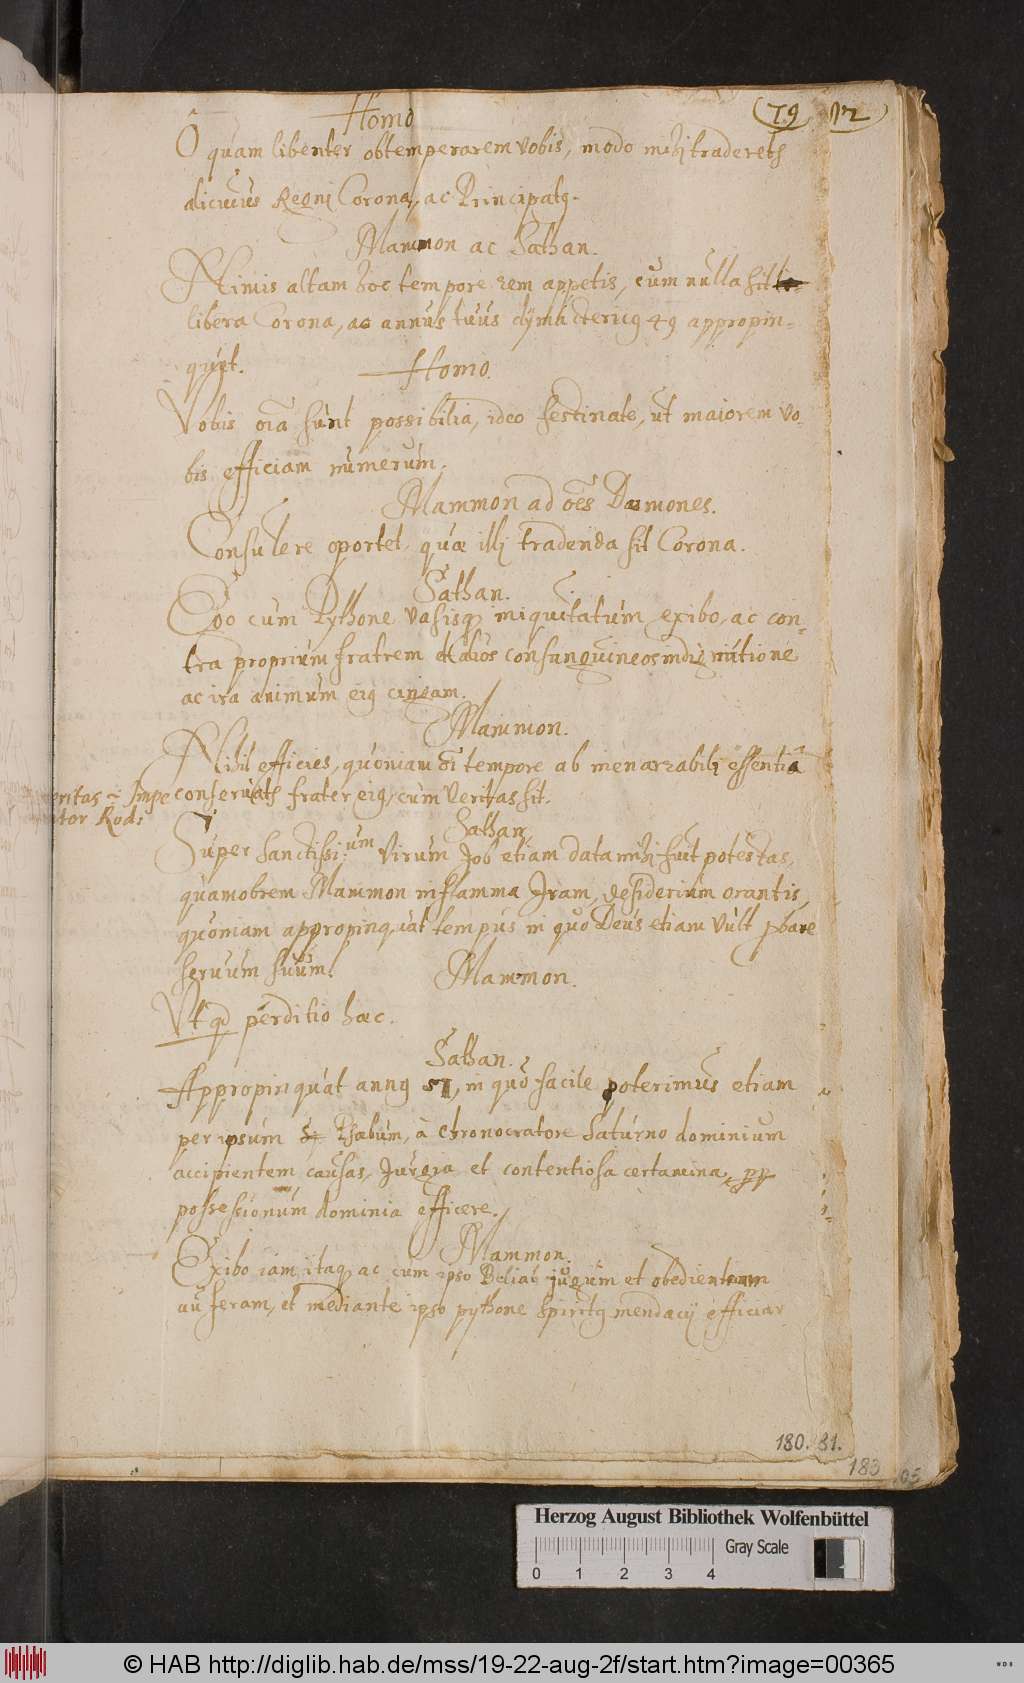 79 12
Homo
O quam libenter obtemperarem vobis, modo mihi traderetis
alicuius Regni Corona, ac Principatꝰ.
Mammon ac Sathan.
Nimis altam hoc tempore rem appetis, cum nulla sit
libera Corona, ac annus tuus 49 appropin=
quet.
Homo.
Vobis oīa sunt possibilia, ideo festinate, ut maiorem vo-
bis efficiam numerum.
Mammon ad oēs Dæmones.
Consulere oportet, quæ illi tradenda sit Corona.
Sathan.
Ego cum Pythone vasisqꝫ iniquitatum exibo, ac con=
tra proprium fratrem et alios consanguineos indignatione
ac ira animum eiꝰ cingam.
Mammon.
Nihil efficies, quoniam oī tempore ab inenarrabili essentiā
eritas Impe
conservatꝰ frater eiꝰ, cum Veritas sit.
tor Rod:
Sathan.
Super Sanctissi:um Virum Job etiam data mihi fuit potestas,
quamobrem Mammon inflamma Iram, desiderium orantis,
quoniam appropinquat tempus in quo Deus etiam vult ꝓbare
servum suum.
Mammon.
Ut qd perditio hæc.
Sathan.
Appropinquat annꝰ 51, in quo facile poterimus etiam
per ipsum à Chronocratore Saturno dominium
accipientem, causas, Iurgia et contentiosa certamina, pp
possessionum dominia efficere.
Mammon.
Exibo iam itaqꝫ ac cum ipso Belial jugum et obedientiam
auferam, et mediante ipso pythone spiritꝰ mendacij efficiar
180. 81.
183
05
Herzog August Bibliothek Wolfenbüttel
Gray Scale
0 1 2 3 4
© HAB http://diglib.hab.de/mss/19-22-aug-2f/start.htm?image=00365